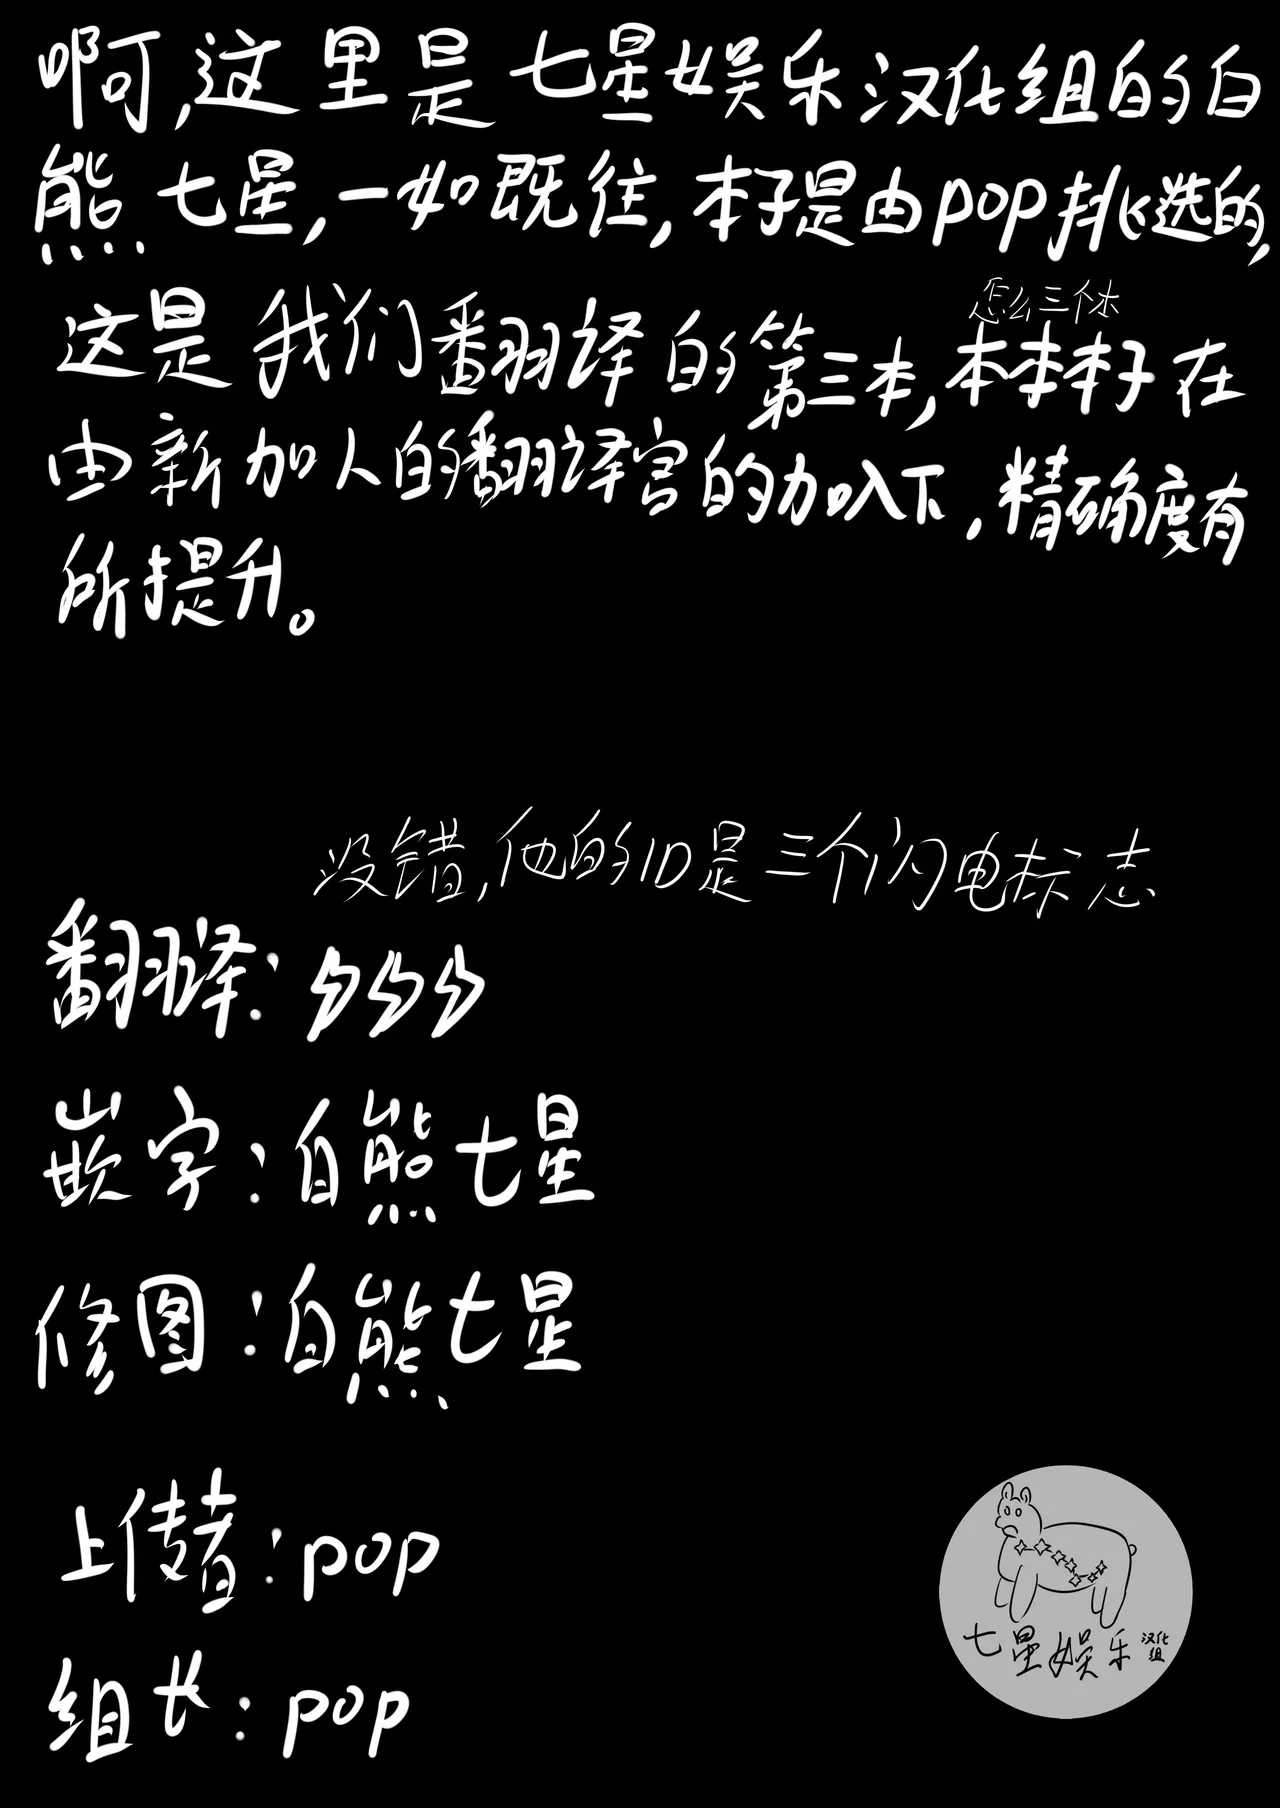 啊，这里是七星娱乐汉化组的白
熊七星，一如既往，本子是由pop挑选的，
怎么三个本
这是我们翻译的第三本，本本本子在
由新加人的翻译官的加入下，精确度有
所提升。
没错，他的ID是三个闪电标志
翻译：⚡⚡⚡
嵌字：白熊七星
修图：白熊七星
上传者：pop
组长：pop
七星娱乐汉化组